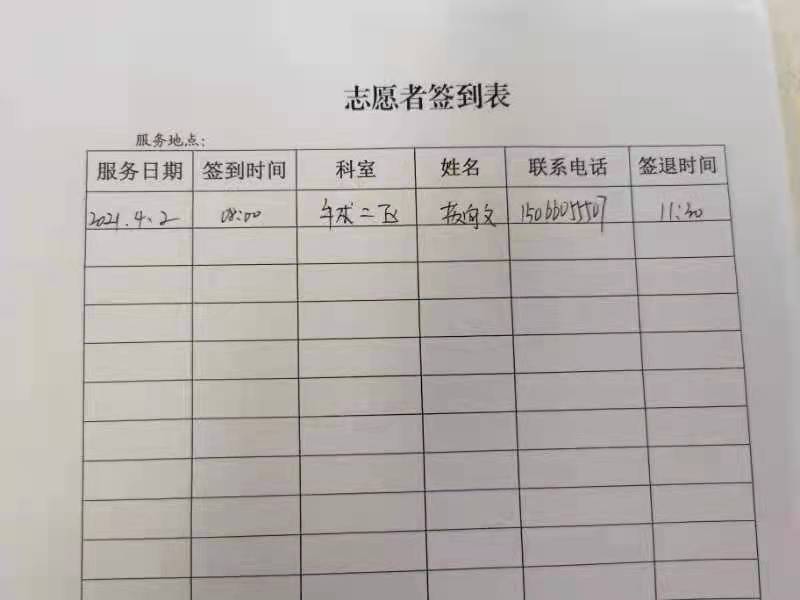 志愿者签到表
服务地点:
服务日期 签到时间 科室 姓名 联系电话 签退时间
2021.4.2 08:00 二区 15066055507 11:30